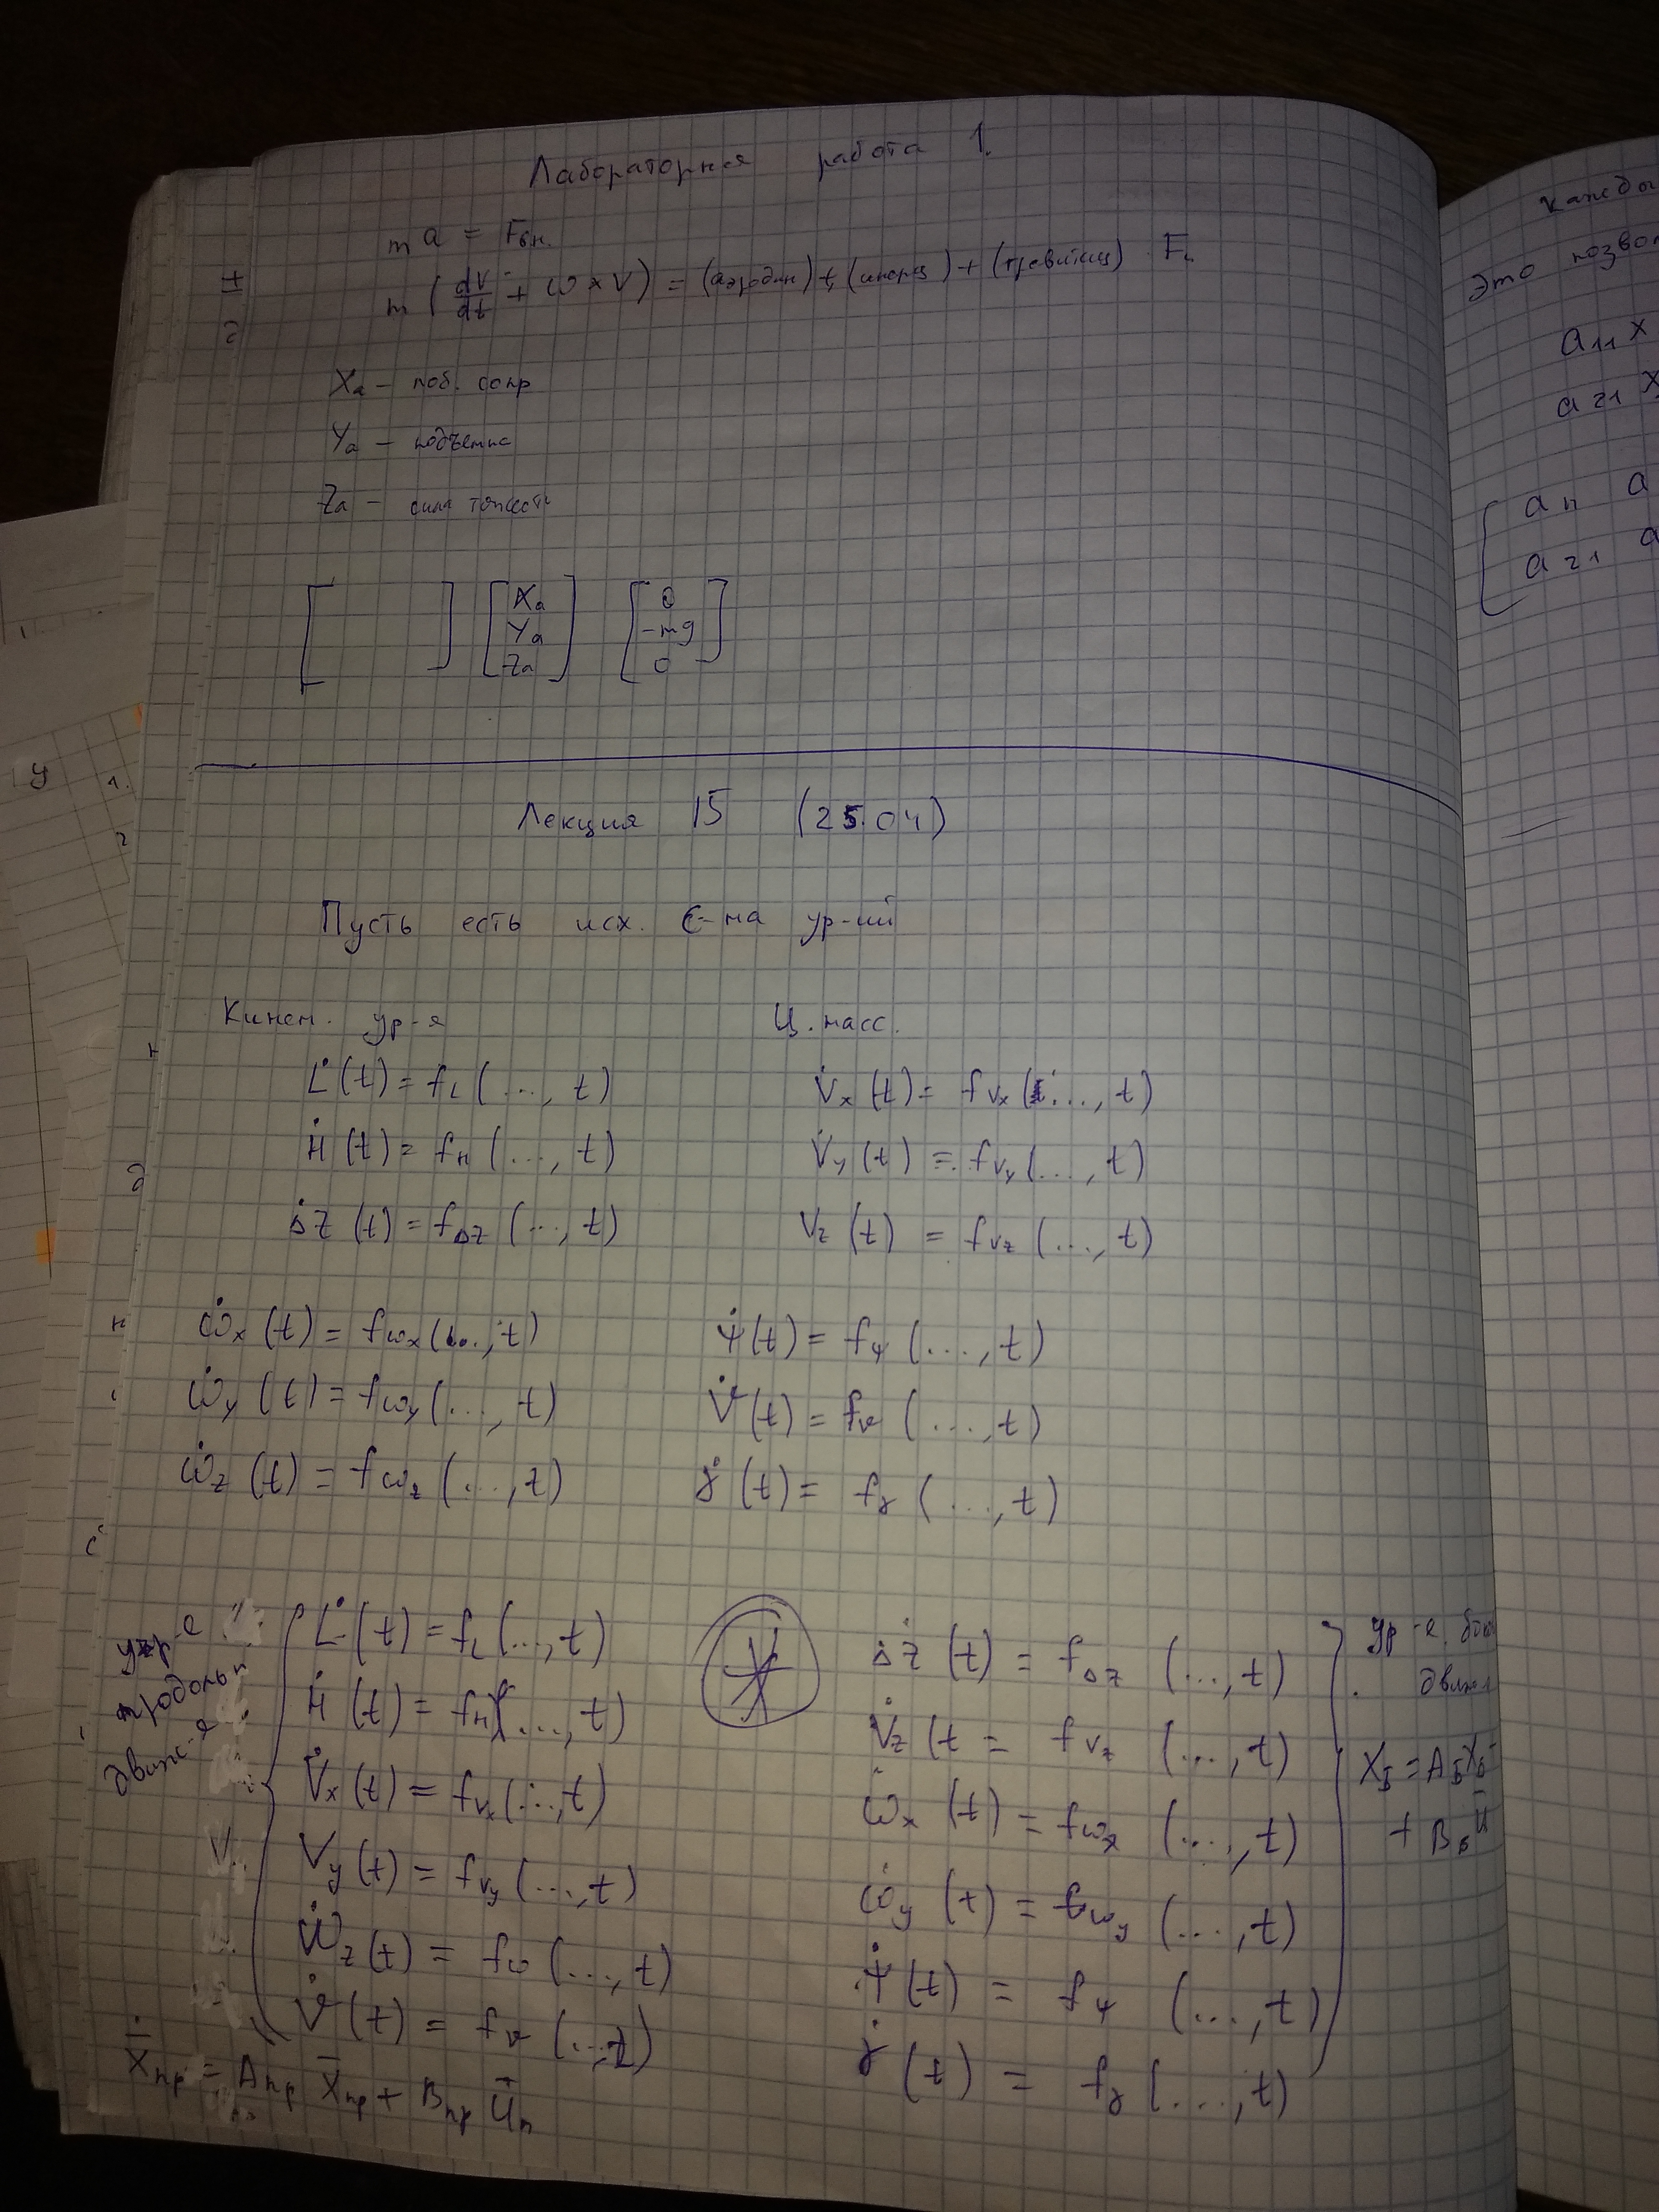 Лабораторная работа 1.
m a = Fвн.
m ( dV/dt + ω × V ) = (аэродин) + (инерц) + (гравитац)
Xa – лоб. сопр
Ya – подъемна
Za – сила
[ ] [ Xa Ya Za ] [ 0 -mg 0 ]
Лекция 15 (25.04)
Пусть есть исх. с-ма ур-ий
Кинем. ур-я
L̇(t) = fL (..., t)
Ḣ(t) = fH (..., t)
ΔŻ(t) = fΔZ (..., t)
Ц. масс.
V̇x(t) = fVx (..., t)
V̇y(t) = fVy (..., t)
Vz(t) = fVz (..., t)
ω̇x(t) = fωx (..., t)
ω̇y(t) = fωy (..., t)
ω̇z(t) = fωz (..., t)
ψ̇(t) = fψ (..., t)
ϑ̇(t) = fϑ (..., t)
γ̇(t) = fγ (..., t)
ур-е
продольн
движ-я
L̇(t) = fL (..., t)
Ḣ(t) = fH (..., t)
V̇x(t) = fVx (..., t)
Vy(t) = fVy (..., t)
ω̇z(t) = fω (..., t)
ϑ̇(t) = fϑ (..., t)
Ẋпр = Aпр X̄пр + Bпр Ūп
ΔŻ(t) = fΔZ (..., t)
V̇z(t = fVz (..., t)
ω̇x(t) = fωx (..., t)
ω̇y(t) = fωy (..., t)
ψ̇(t) = fψ (..., t)
γ̇(t) = fγ (..., t)
ур-е. бок
движ
XБ = AБXБ
+ Bб ū
Кажды
Это позвол
a11 x
a21 x
a11 a
a21 a